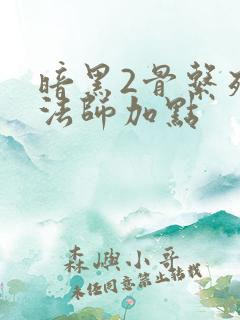 暗黑2骨系死
法師加點
森嶼小哥
未经同意禁止转载